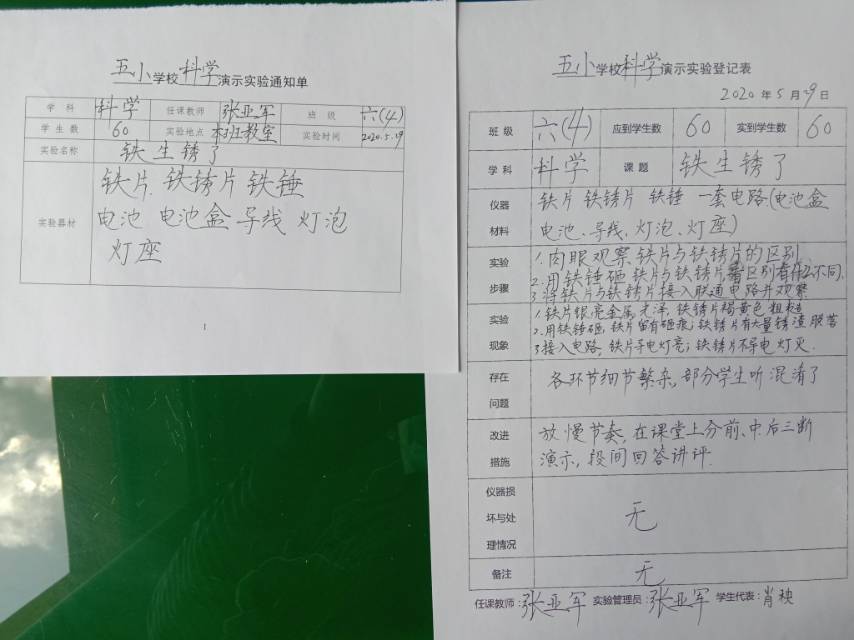 五小学校科学演示实验通知单
学 科 科学 任课教师 张亚军 班 级 六(4)
学 生 数 60 实验地点 本班教室 实验时间 2020.5.19
实验名称 铁生锈了
实验器材 铁片、铁锈片 铁锤
电池 电池盒 导线 灯泡
灯座
1
五小学校科学演示实验登记表
2020 年 5 月 19 日
班 级 六(4) 应到学生数 60 实到学生数 60
学 科 科学 课 题 铁生锈了
仪器 铁片 铁锈片 铁锤 一套电路.(电池盒
材料 电池、导线、灯泡、灯座)
实验 1.肉眼观察、铁片与铁锈片的区别
2.用铁锤砸铁片与铁锈片看区别有什么不同.
步骤 3.将铁片与铁锈片接入联通电路并观察
实验 1.铁片银亮金属光泽,铁锈片褐黄色粗糙
2.用铁锤砸,铁片留有砸痕;铁锈片有大量锈渣脱落
现象 3.接入电路,铁片导电灯亮;铁锈片不导电灯灭.
存在 各环节细节繁杂,部分学生听混淆了
问题
改进 放慢节奏,在课堂上分前、中、后三断
措施 演示,段间回答讲评.
仪器损
坏与处 无
理情况
备注 无
任课教师:张亚军 实验管理员:张亚军 学生代表:肖秧